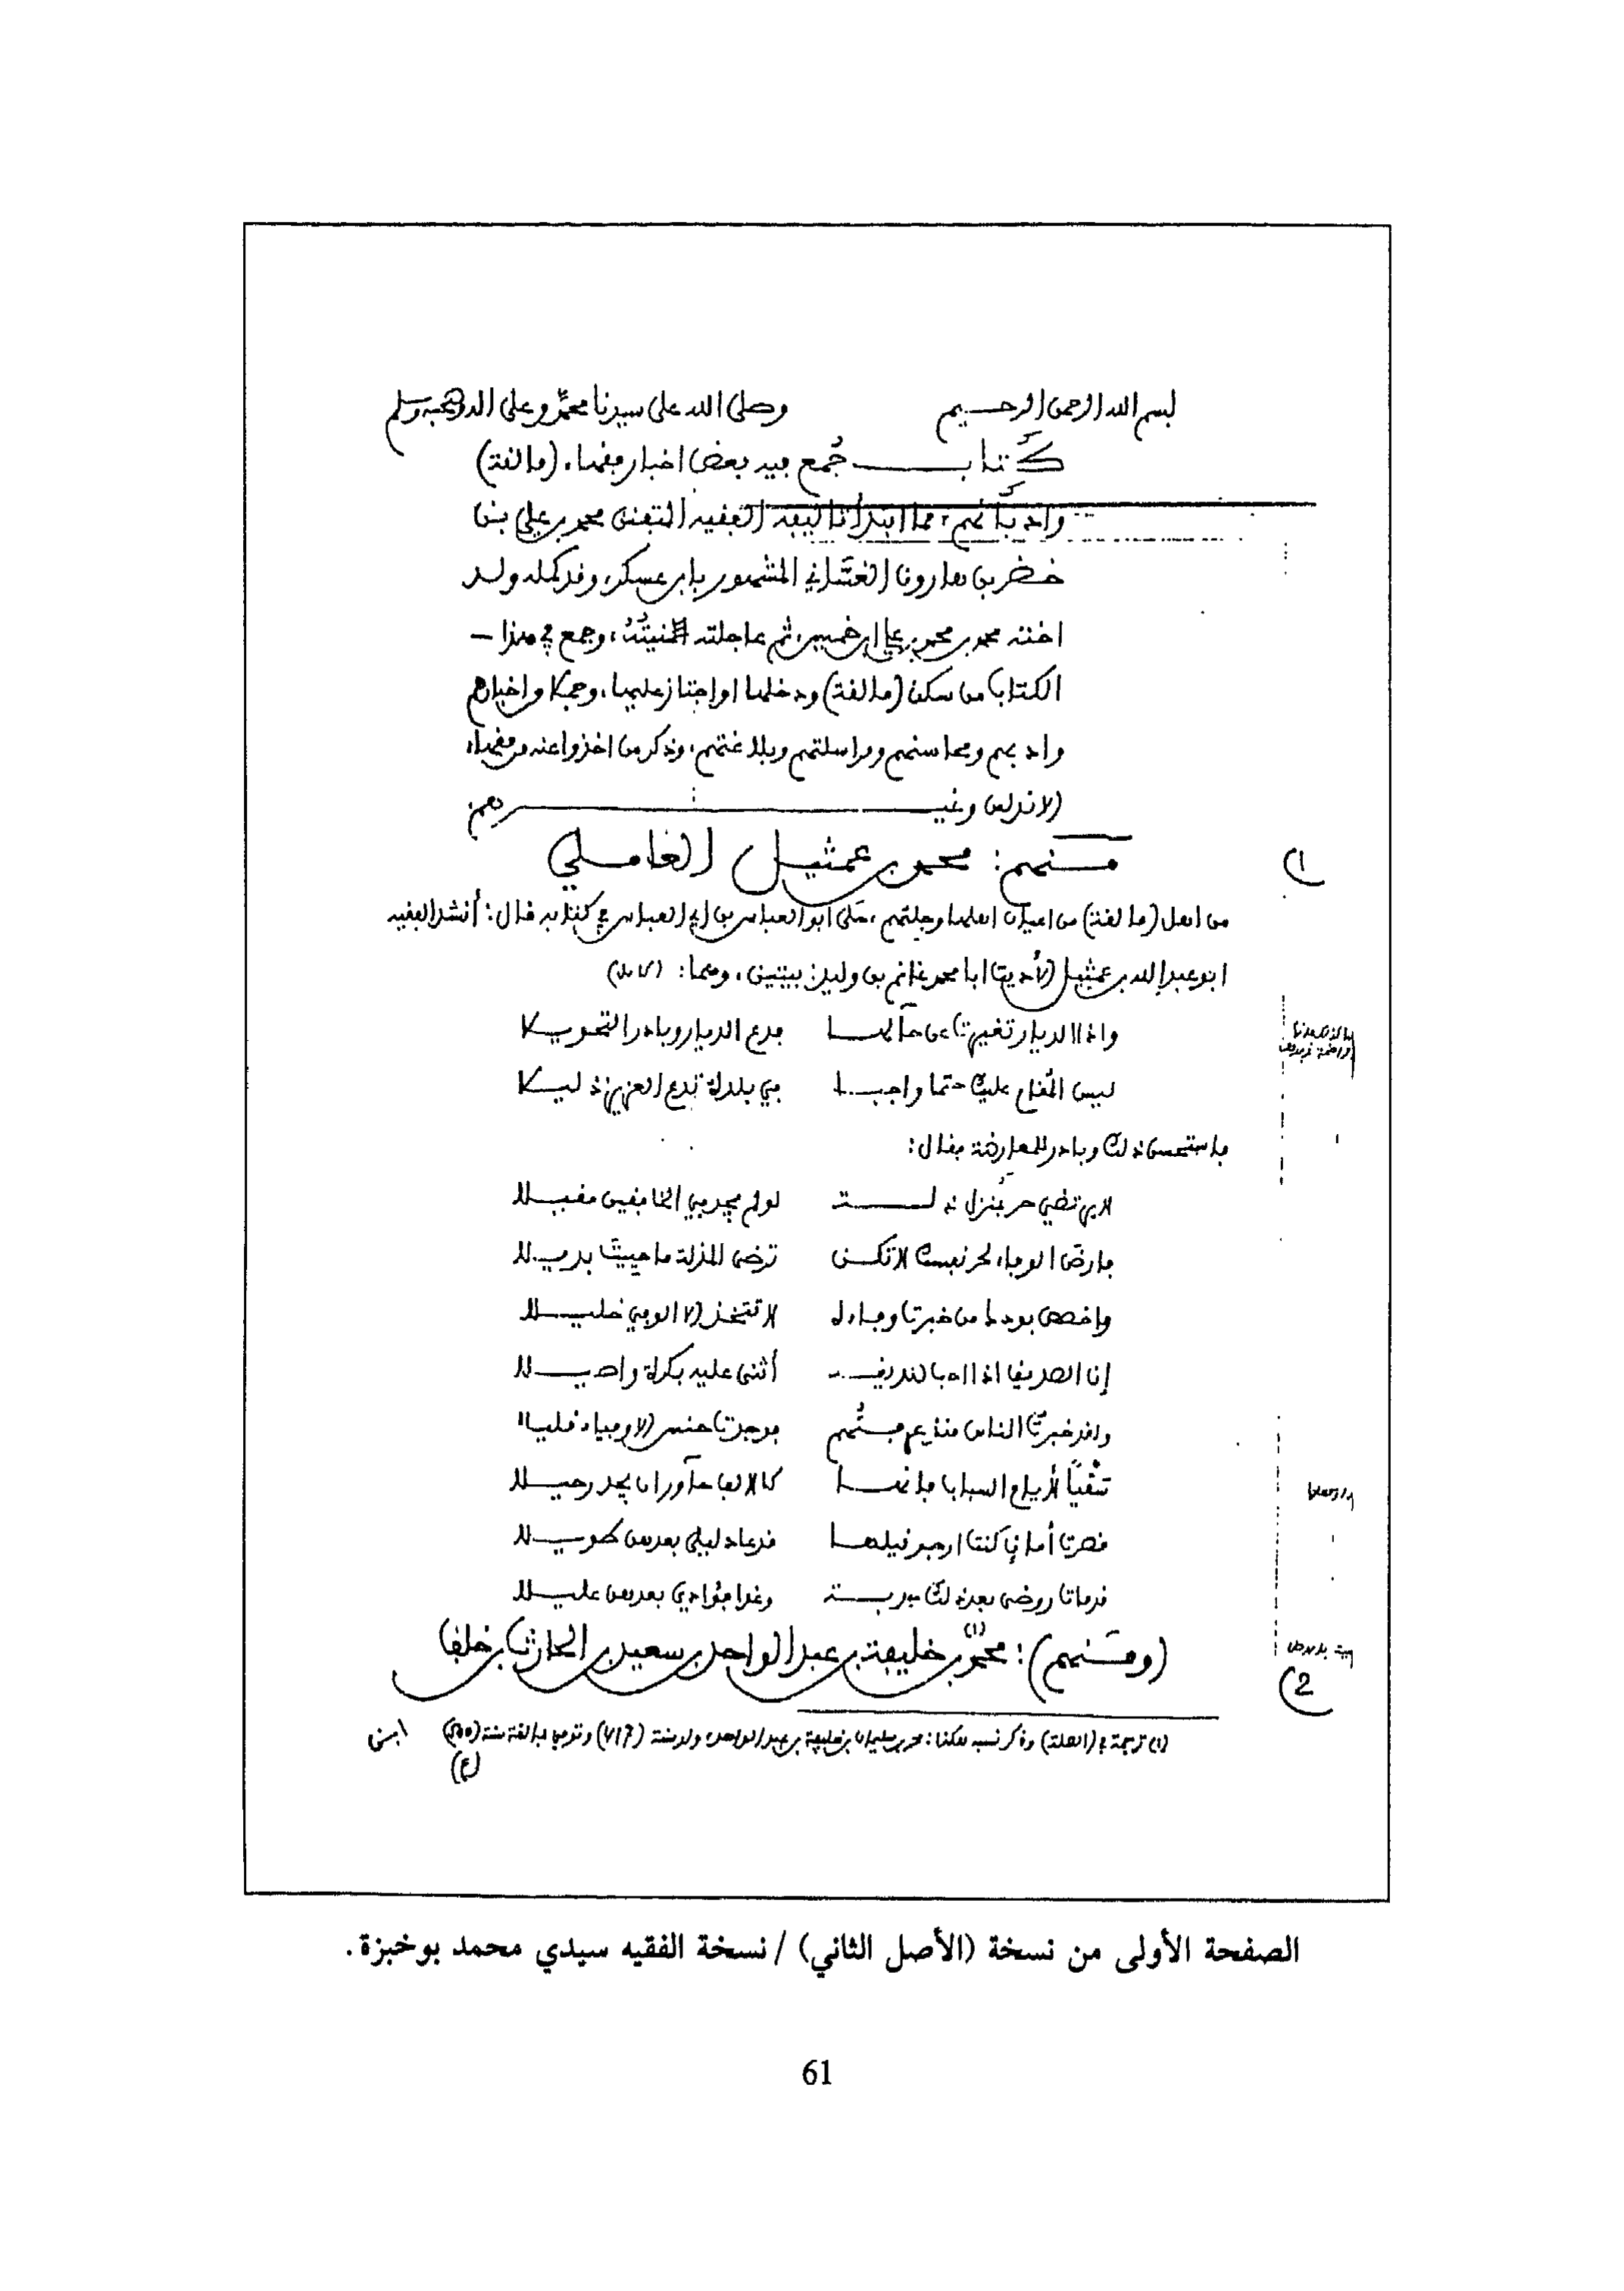 بسم الله الرحمن الرحيم وصلى الله على سيدنا محمد وعلى آله وصحبه وسلم
كتاب جُمع فيه بعض أخبار فقهاء (مالقة)
وأدبائهم، مما ابتدأ تاليفه الفقيه المتفنن محمد بن علي بن
خضر بن هارون الغساني المشهور بابن عسكر، وقد كمله ولد
اخته محمد بن محمد بن علي ابن خميس، ثم عاجلته المنيّة، وجمع في هذا –
الكتاب من سكن (مالقة) ودخلها او اجتاز عليها، وحكا واخبارهم
وادبهم ومحاسنهم ومراسلتهم وبلاغتهم، وذكر من اخذوا عنه من فقهاء
الاندلس وغيرهم
منهم: محمد بن عمثيل العاملي
1)
من اهل (مالقة) من اعيان اهلها وجلتهم، حكى ابو العباس بن أبي العباس في كتابه قال: أنشد الفقيه
ابو عبد الله بن عمثيل الأديب ابا محمد غانم بن وليد: بيتين، وهما: (كامل)
واذا الديار تغيرت عن حالها فدع الديار وبادر التحويلا
ليس المُقام عليك حتما واجبا في بلدة تدع العزيز ذليلا
فاستحسن ذلك وبادر للمعارضة فقال:
لا يرتضي حر بمنزل ذلة لو لم يجد في الخافقين مقيلا
فارض الوفاء لحر نفسك لا تكن ترضى المذلة ما حييت بديلا
واخصص بودك من خبرت وفاءه لا تتخذ إلا الوفي خليلا
ولقد خبرت الناس منذ عرفتهم فوجدت جنس الاوفياء قليلا
قصرت أماني كنت ارجو نيلها قد عاد ليلي بعدهن طويلا
وغدا فؤادي بعدهن عليلا
(ومنهم): محمد(1) بن خليفة بن عبد الواحد بن سعيد بن الحارث بن خلف
2)
(1) ترجمة في (الصلة) وذكر نسبه هكذا: محمد بن سليمان بن خليفة بن عبد الواحد، ولد سنة (417) وتوفي بمالقة سنة (500) ابن
(ع)
الصفحة الأولى من نسخة (الأصل الثاني) / نسخة الفقيه سيدي محمد بوخبزة.
61